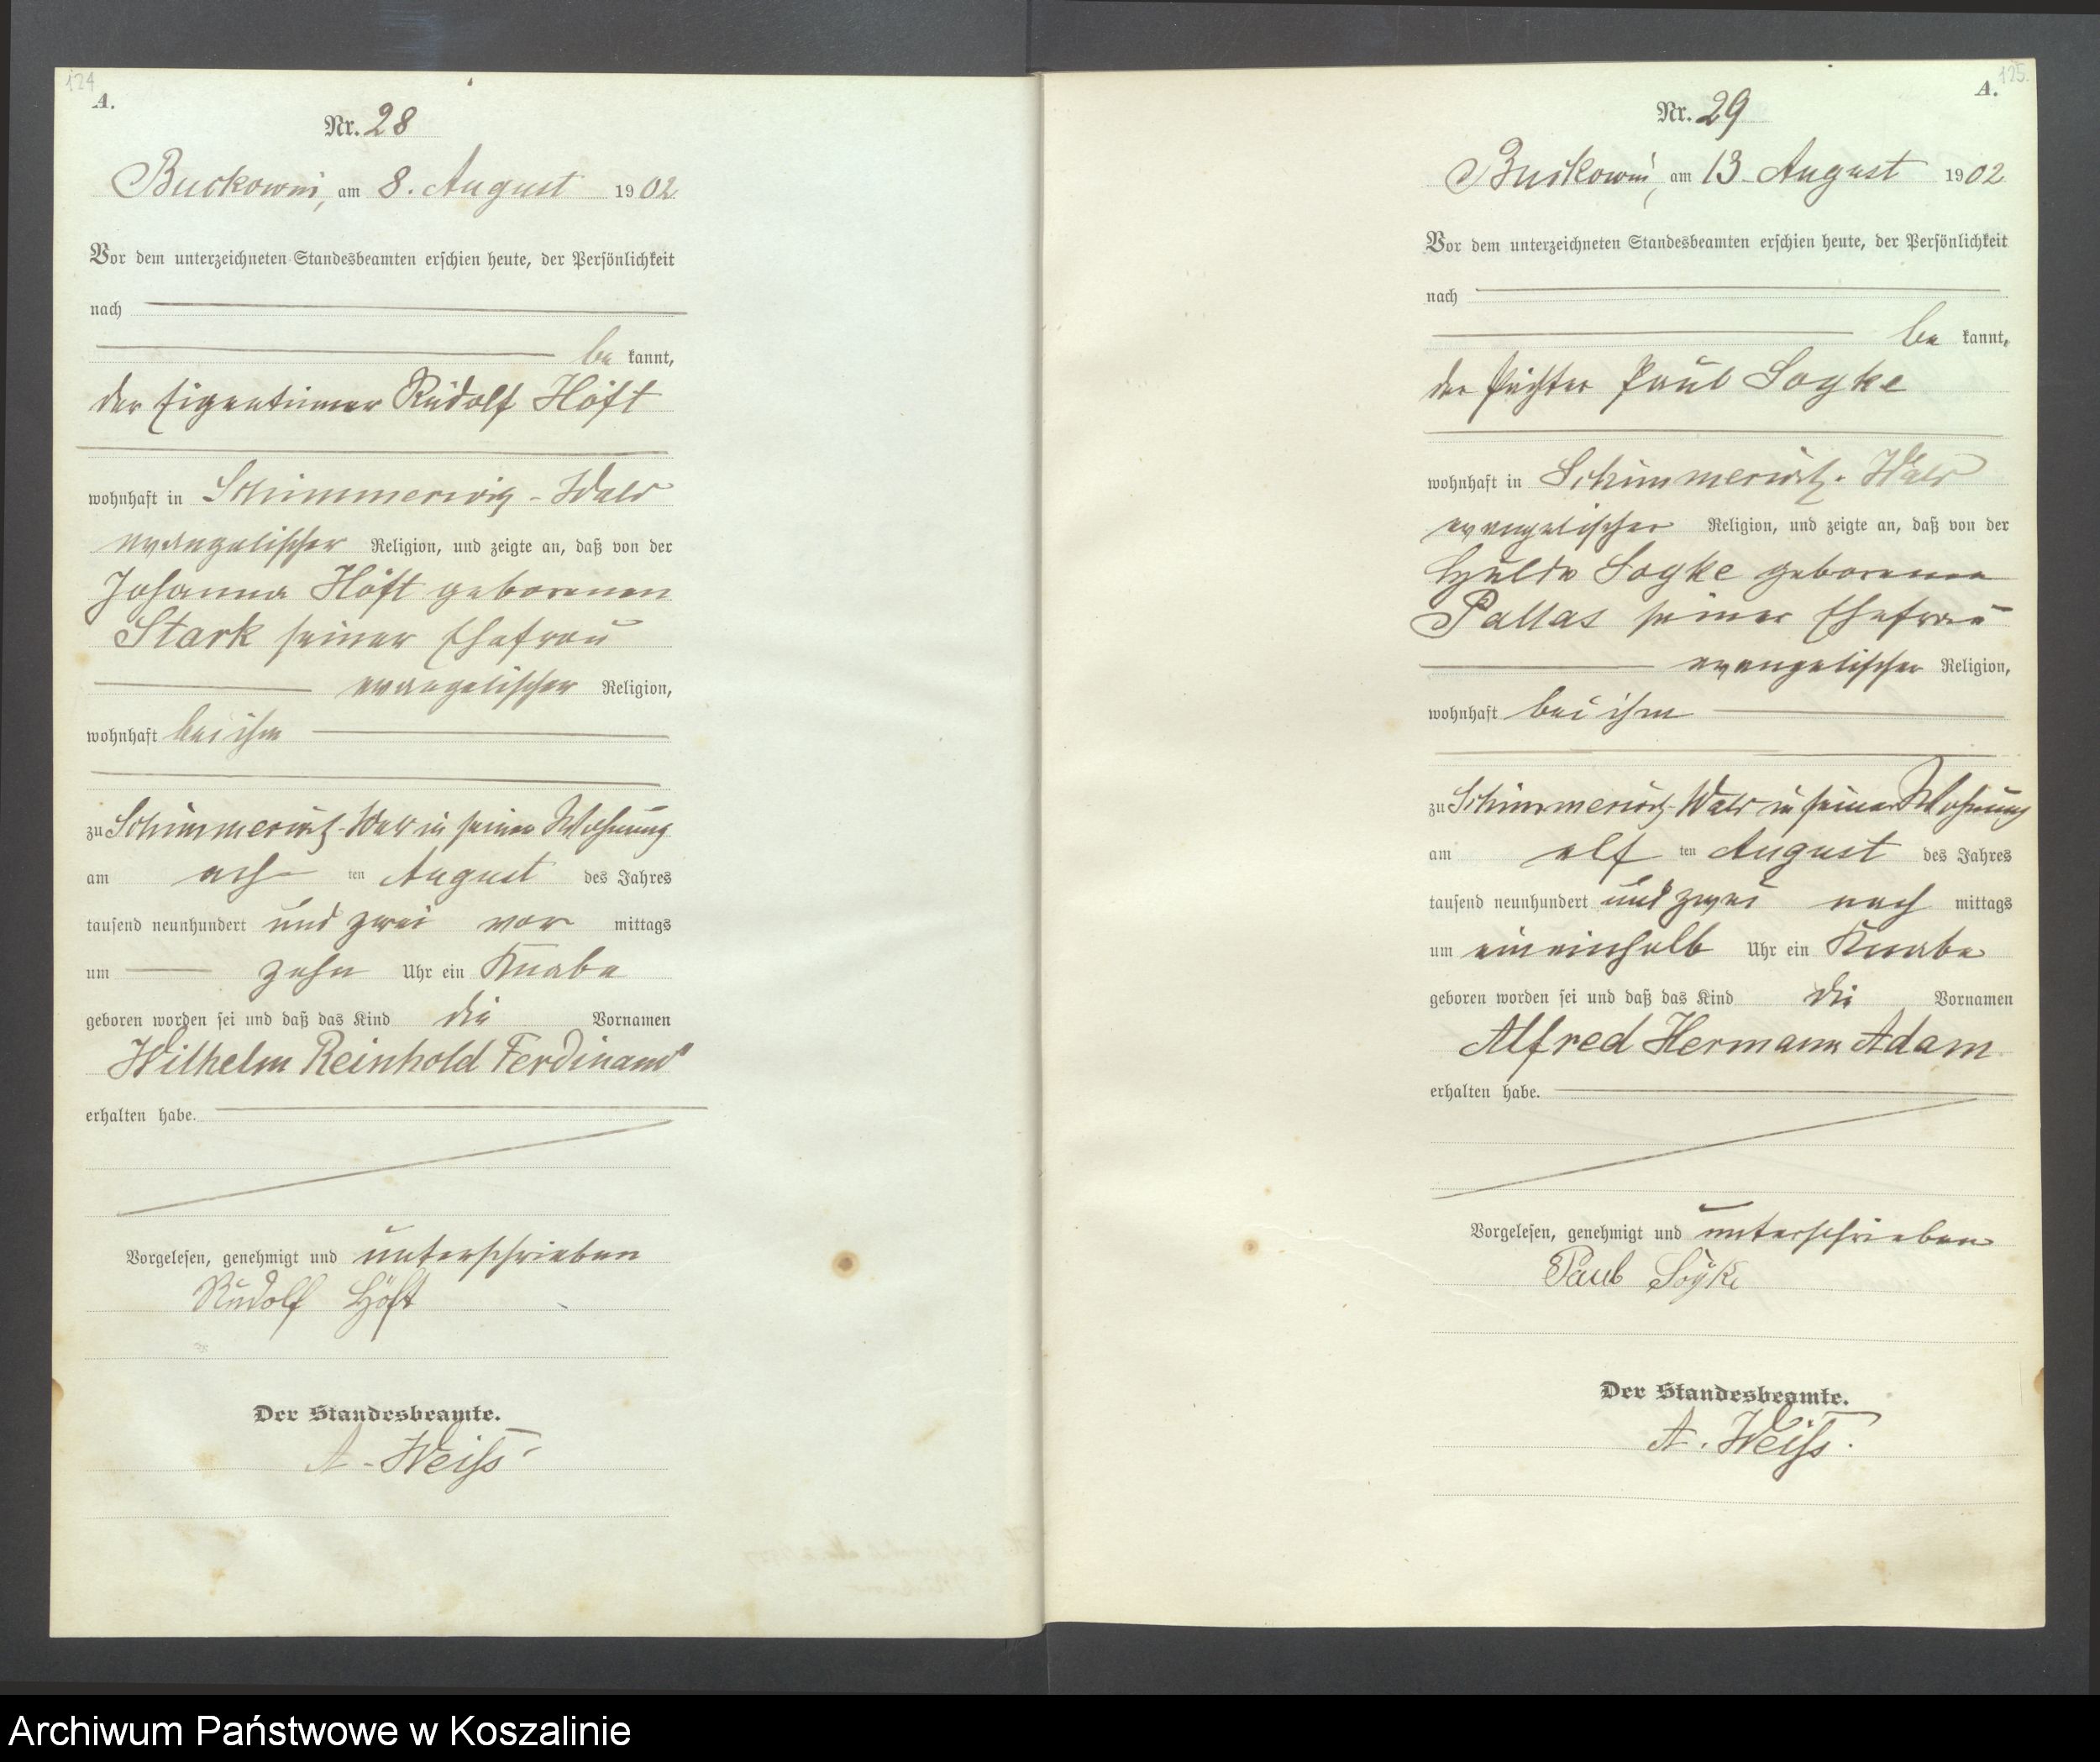 124
A.
Nr. 28
Buckowin, am 8. August 1902
Vor dem unterzeichneten Standesbeamten erschien heute, der Persönlichkeit
nach
be kannt,
der Eigentümer Rudolf Höft
wohnhaft in Schimmerwitz-Wald
evangelischer Religion, und zeigte an, daß von der
Johanna Höft geborenen
Stark seiner Ehefrau
evangelischer Religion,
wohnhaft bei ihm
zu Schimmerwitz-Wald in seiner Wohnung
am ach ten August des Jahres
tausend neunhundert und zwei vor mittags
um zehn Uhr ein Knabe
geboren worden sei und daß das Kind die Vornamen
Wilhelm Reinhold Ferdinand
erhalten habe.
Vorgelesen, genehmigt und unterschrieben
Rudolf Höft
Der Standesbeamte.
A. Weiß
125.
A.
Nr. 29
Buckowin, am 13. August 1902
Vor dem unterzeichneten Standesbeamten erschien heute, der Persönlichkeit
nach
be kannt,
der Pächter Paul Soyke
wohnhaft in Schimmerwitz-Wald
evangelischer Religion, und zeigte an, daß von der
Hulda Soyke geborenen
Pallas seiner Ehefrau
evangelischer Religion,
wohnhaft bei ihm
zu Schimmerwitz-Wald in seiner Wohnung
am elf ten August des Jahres
tausend neunhundert und zwei nach mittags
um eineinhalb Uhr ein Knabe
geboren worden sei und daß das Kind die Vornamen
Alfred Hermann Adam
erhalten habe.
Vorgelesen, genehmigt und unterschrieben
Paul Soyke
Der Standesbeamte.
A. Weiß.
Archiwum Państwowe w Koszalinie